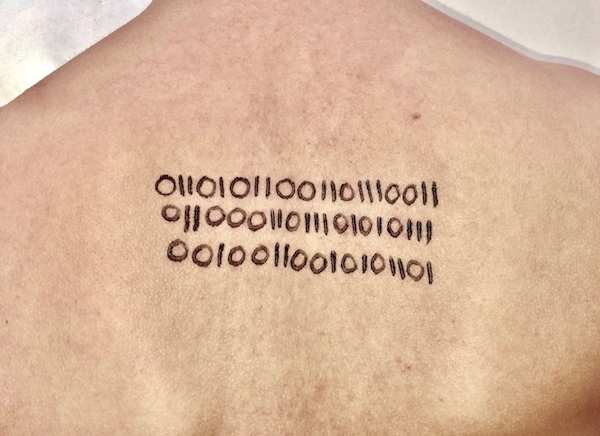 01101011001101110011
01100011011101010111
00100110010101101